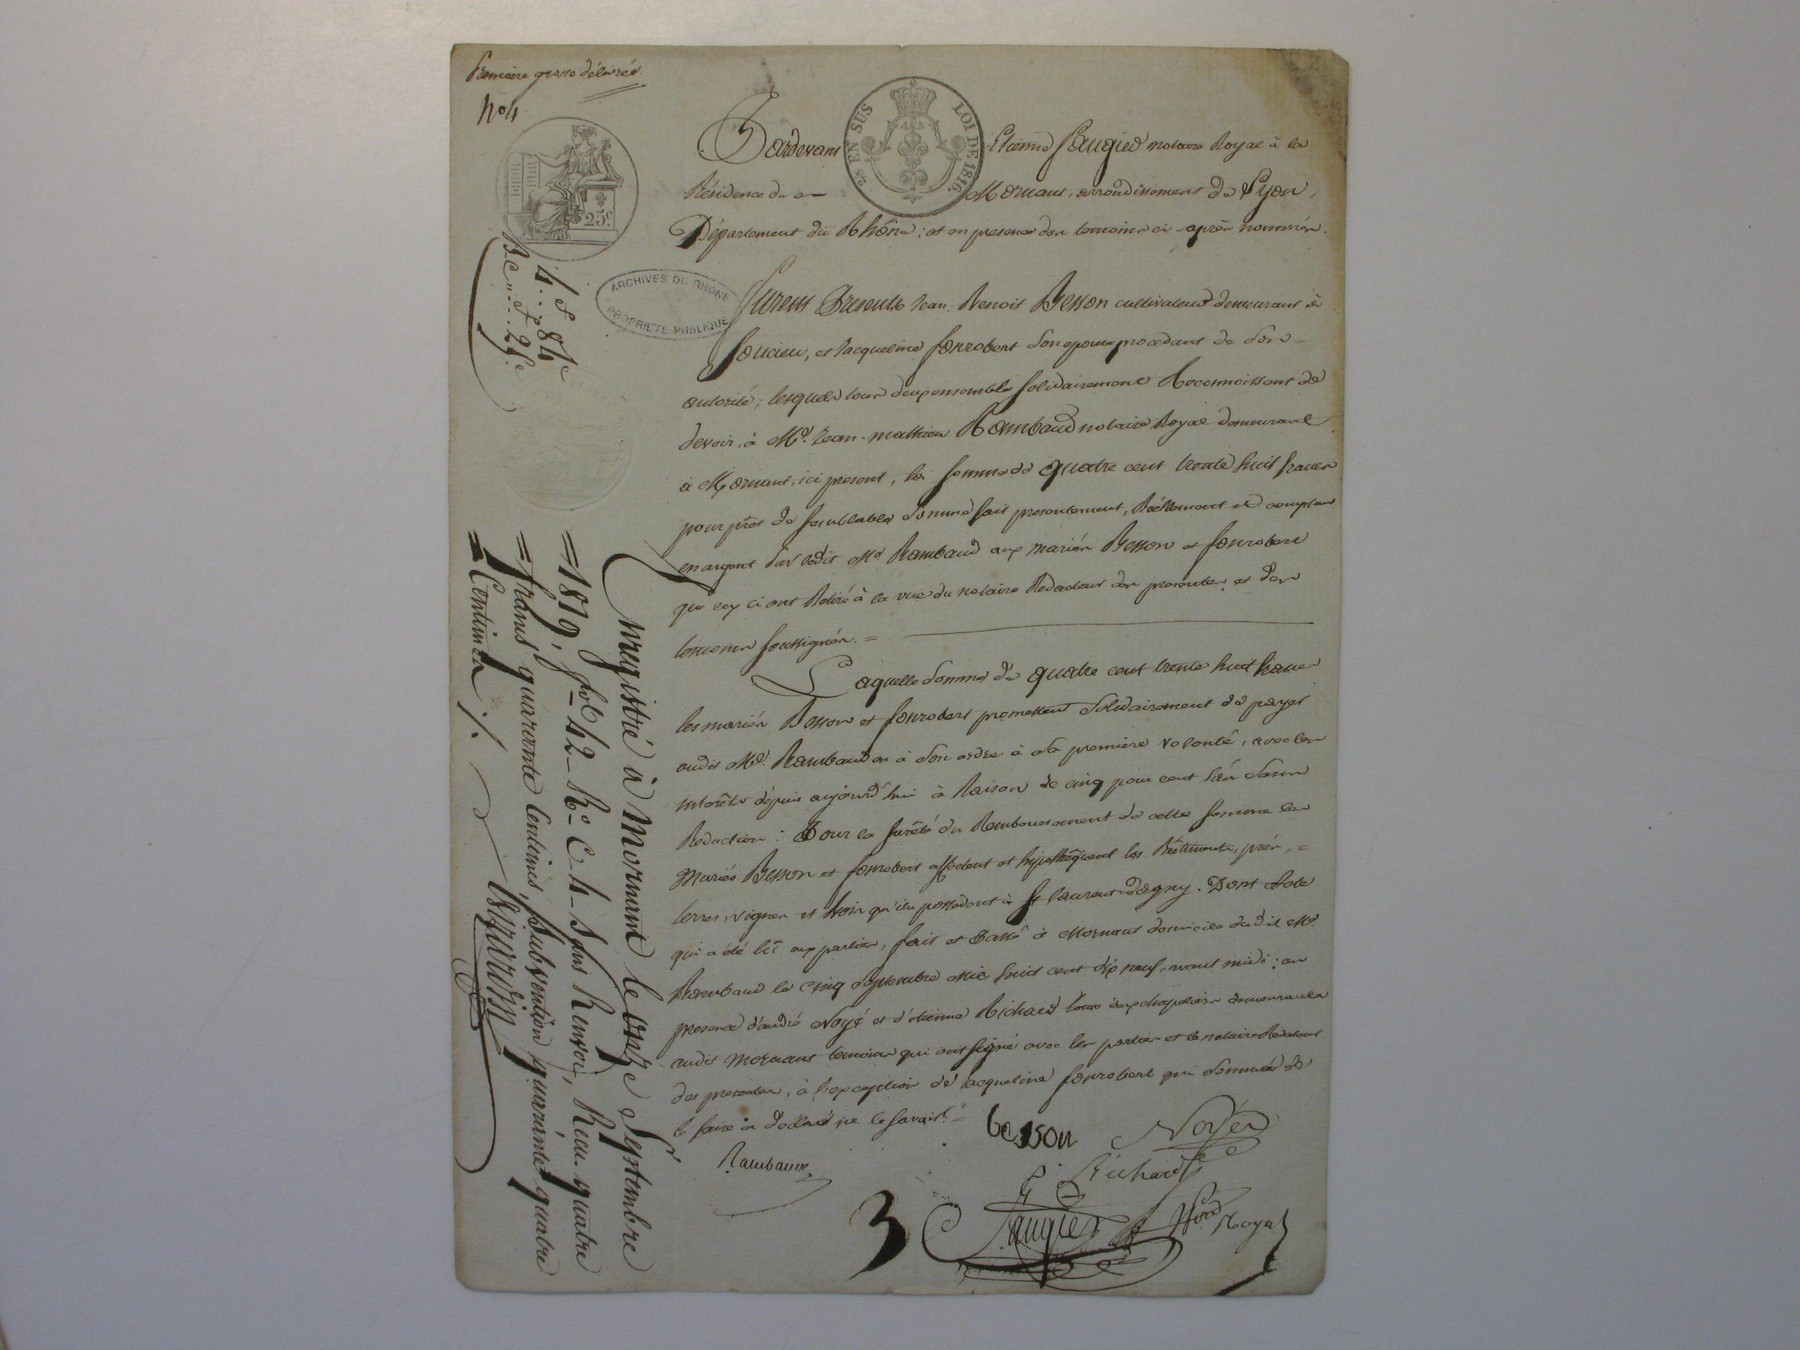 Première grosse délivrée
No 4
25 EN SUS
LOI DE 1816.
25 c.
4 f 84 c
ARCHIVES DU RHÔNE
PROPRIÉTÉ PUBLIQUE
Pardevant Etienne Faugier notaire Royal à la
Résidence de Mornant, arrondissement de Lyon,
Département du Rhône; et en presence des temoins ci-après nommés.
Furent Presents Jean-Benoit Besson cultivateur demeurant à
Soucieu, et Jacqueline Fonrobert son epouse procedant de son
autorité; lesquels tous deux ensemble solidairement Reconnoissent
devoir, à Me. Jean-Mathieu Rambaud notaire Royal demeurant
à Mornant, ici present, la somme de quatre cent trente huit francs
pour prêt de semblable somme fait presentement, Réellement et comptant
en argent par ledit Me Rambaud aux mariés Besson et Fonrobert
qui ont Retiré à la vue du notaire Redacteur des presentes, et des
temoins soussignés. =
Laquelle somme de quatre cent trente huit francs
les mariés Besson et Fonrobert promettent solidairement de payer
audit Me. Rambaud ou à son ordre à sa première volonté, avec les
interêts depuis aujourd'hui à Raison de cinq pour cent l'an sans
Reduction: Pour la sureté du Remboursement de cette somme les
Mariés Besson et Fonrobert affectent et hypothêquent les Bâtiments, prés, =
terres, vignes et bois qu'ils possedent à St laurent-d'agny. Dont acte
qui a été lû aux parties, fait et Passé à Mornant domicile dudit Me
Rambaud le cinq septembre mil huit cent dix neuf, avant midi; en
presence d'andré Noyé et d'etienne Richard tous deux chapeliers demeurants
audit Mornant temoins qui ont signé avec les parties et le notaire Redacteur
des presentes, à l'exception de Jacqueline Fonrobert qui sommée de
le faire a declaré ne le savoir. =
besson
Noyer
Rambaud
Richard
3
Faugier
Royal
Enregistré à Mornant le onze Septembre
= 1819, fol. 42 - Ro C. 4 - sans Renvoi, Reçu quatre
= francs quarante Centimes, Subvention quarante quatre
= Centimes ./.